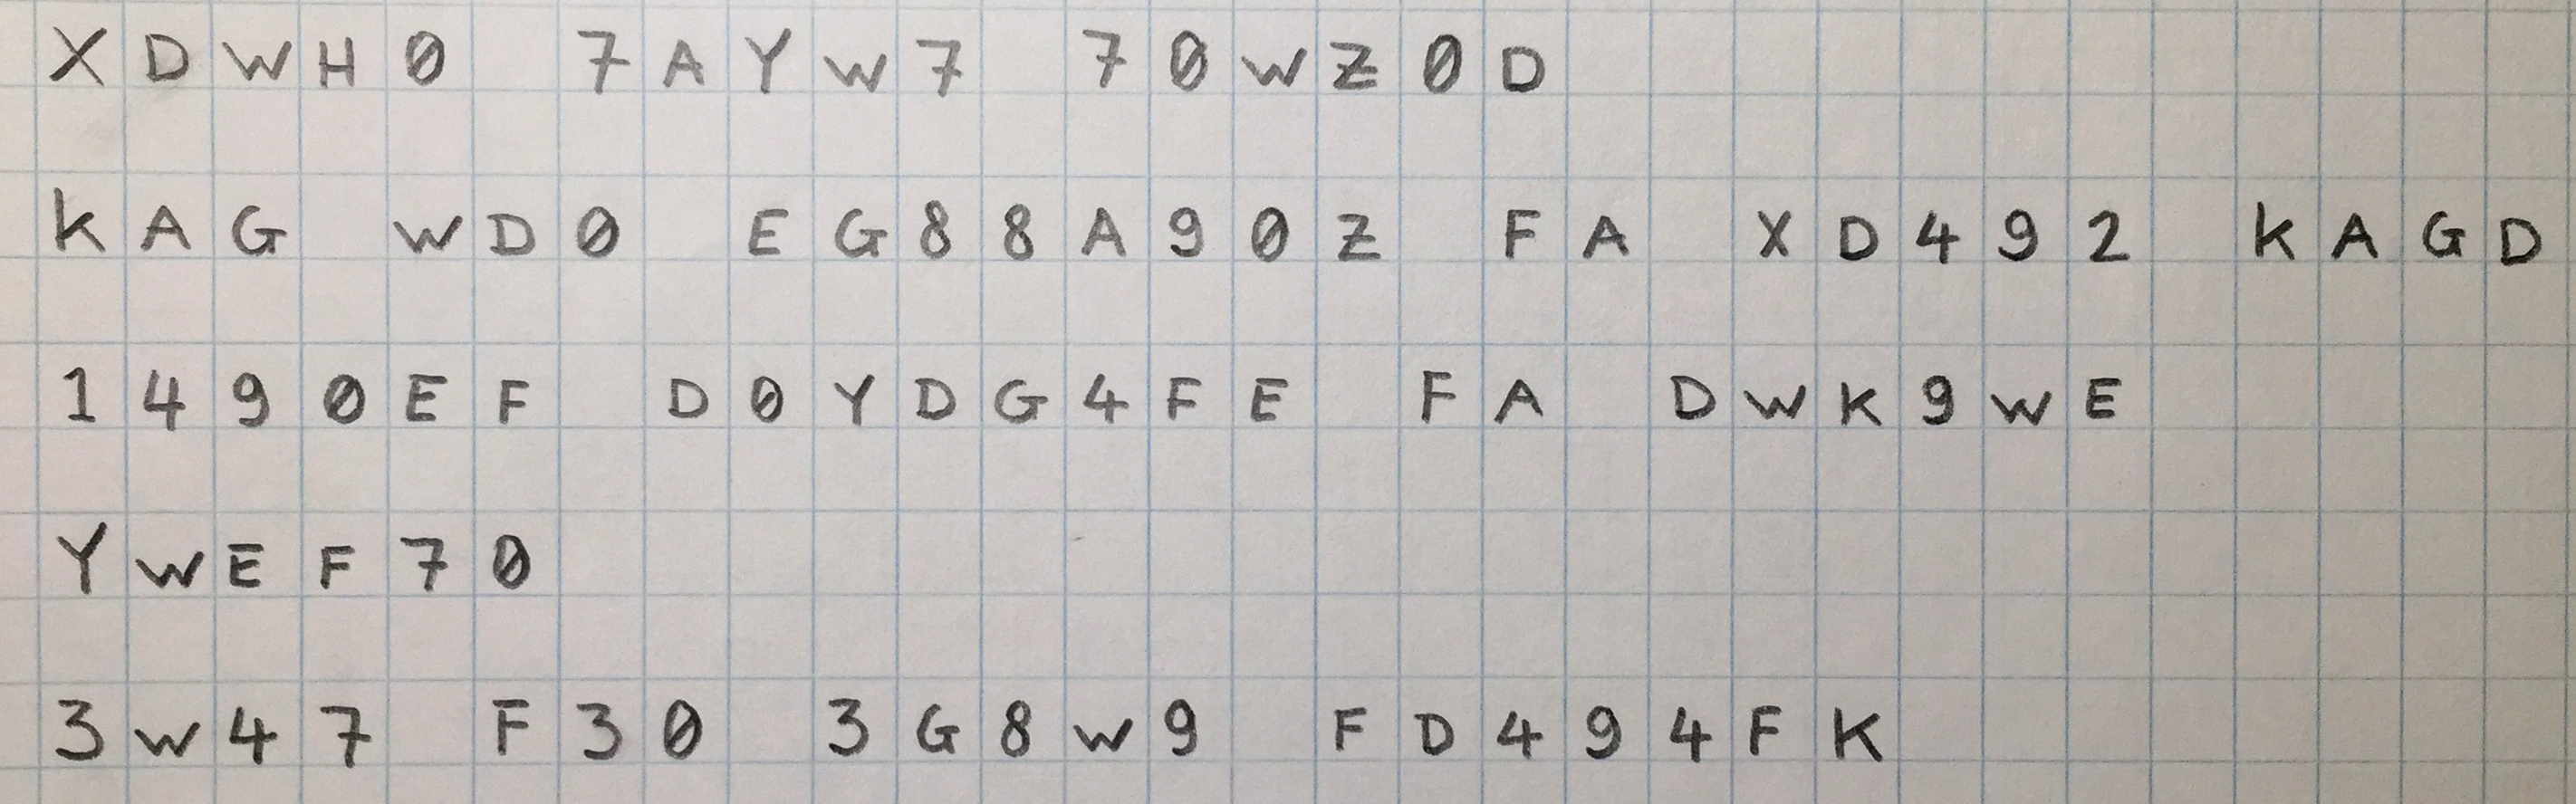 XDWH0 7AYW7 70WZ0D
KAG WD0 EG88A90Z FA XD492 KAGD
1490EF D0YDG4FE FA DWK9WE
YWEF70
3W47 F30 3G8W9 FD494FK